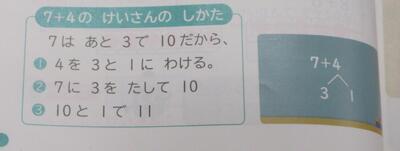 7+4の けいさんの しかた
7は あと 3で 10だから、
❶ 4を 3と 1に わける。
❷ 7に 3を たして 10
❸ 10と 1で 11
7+4
3 1